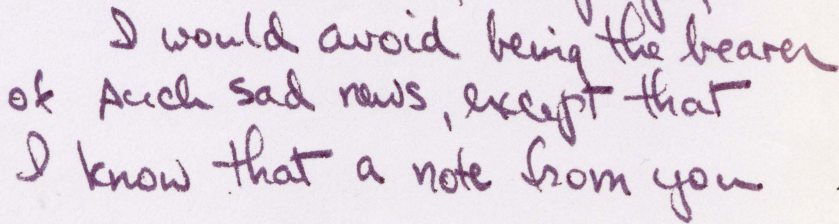 I would avoid being the bearer
of such sad news, except that
I know that a note from you